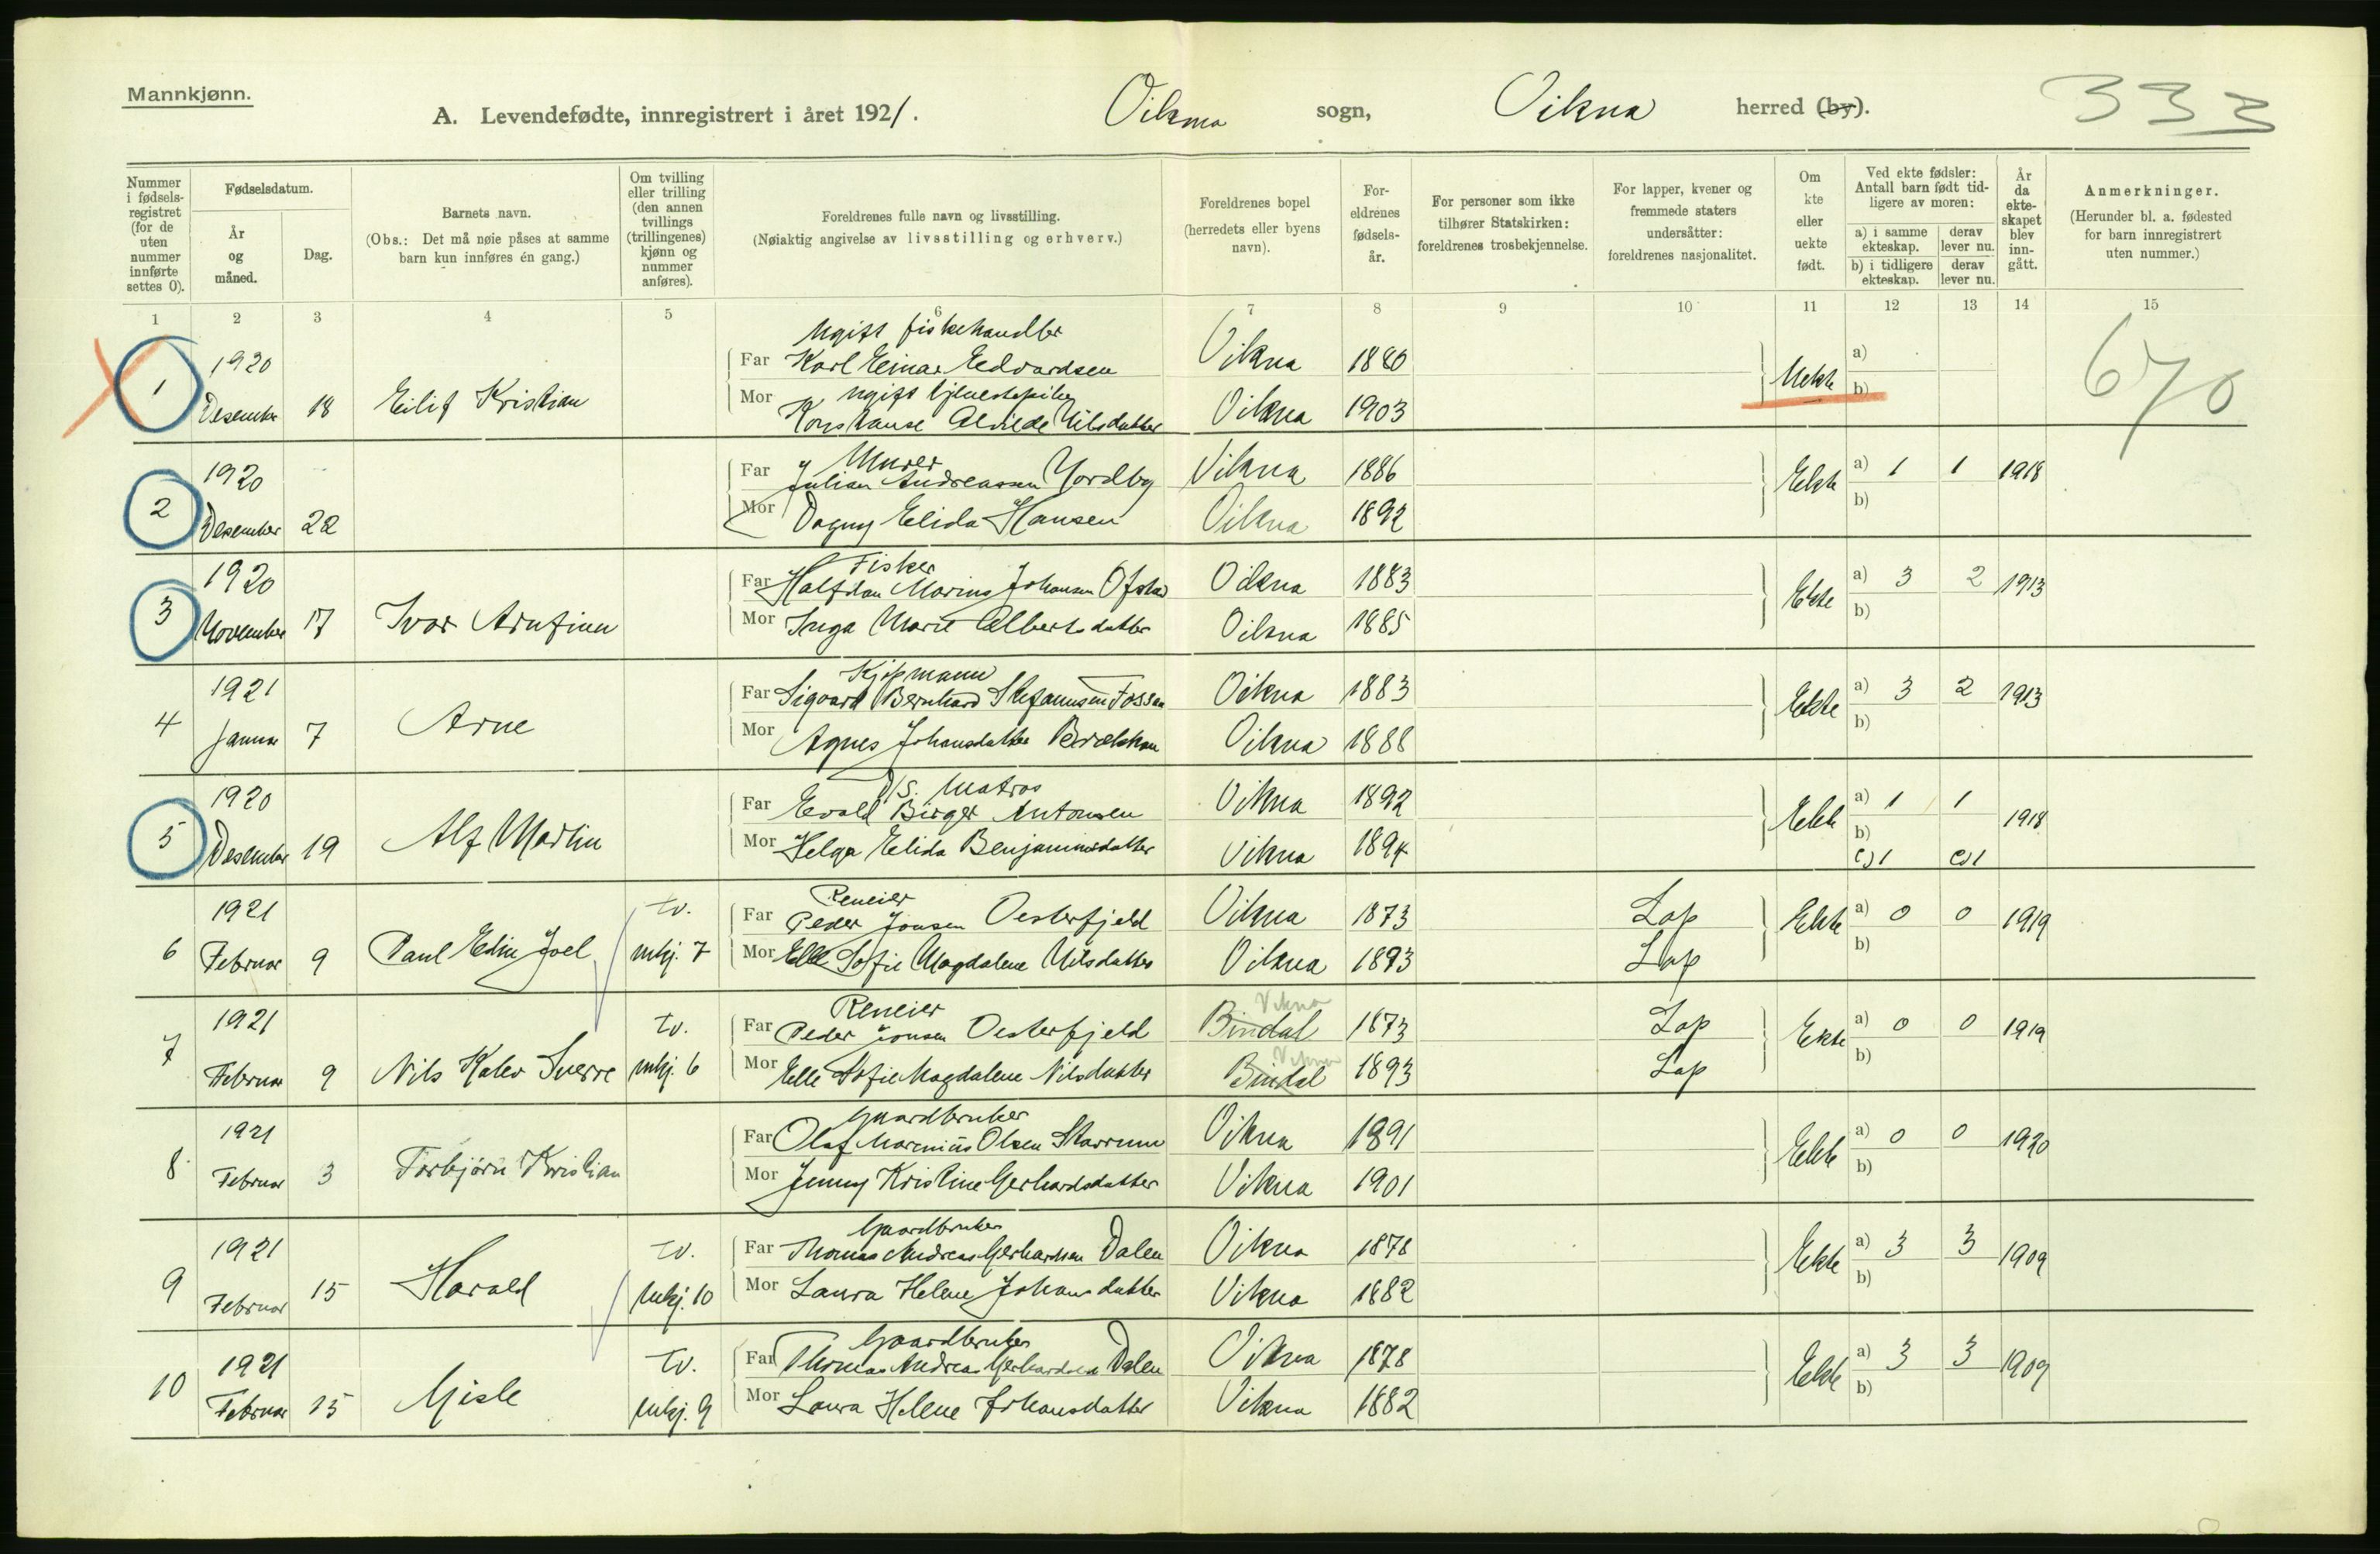 Mannkjønn.
A. Levendefødte, innregistrert i året 1921. Vikna sogn, Vikna herred (by). 333
Nummer i fødselsregistret (for de uten nummer innførte settes 0).
Fødselsdatum.
År og måned.
Dag.
Barnets navn.
(Obs.: Det må nøie påses at samme barn kun innføres én gang.)
Om tvilling eller trilling (den annen tvillings (trillingenes) kjønn og nummer anføres).
Foreldrenes fulle navn og livsstilling.
(Nøiaktig angivelse av livsstilling og erhverv.)
Foreldrenes bopel (herredets eller byens navn).
Foreldrenes fødselsår.
For personer som ikke tilhører Statskirken: foreldrenes trosbekjennelse.
For lapper, kvener og fremmede staters undersåtter: foreldrenes nasjonalitet.
Om kte eller uekte født.
Ved ekte fødsler: Antall barn født tidligere av moren:
a) i samme ekteskap. derav lever nu.
b) i tidligere ekteskap. derav lever nu.
År da ekteskapet blev inngått.
Anmerkninger.
(Herunder bl. a. fødested for barn innregistrert uten nummer.)
1 2 3 4 5 6 7 8 9 10 11 12 13 14 15
Ugift fiskehandler
1 1920 Far Karl Einar Edvardsen Vikna 1880 Uekte a) 670
Desember 18 Eilif Kristian Mor Ugift tjenestepike b)
Konstanse Alvilde Nilsdatter Vikna 1903
Murer
2 1920 Far Julian Andreassen Nordby Vikna 1886 Ekte a) 1 1 1918
Desember 22 Mor Dagny Elida Hansen Vikna 1892 b)
Fisker
3 1920 Far Halfdan Marius Johansen Vikna 1883 Ekte a) 3 2 1913
November 17 Ivar Arnfinn Mor Inga Marie Albertsdatter Vikna 1885 b)
Kjøpmann
4 1921 Far Sigvard Bernhard Stefanusen Fossaa Vikna 1883 Ekte a) 3 2 1913
Januar 7 Arne Mor Agnes Johansdatter Vikna 1888 b)
D/S. Matros
5 1920 Far Evald Birger Antonsen Vikna 1892 Ekte a) 1 1 1918
Desember 19 Alf Martin Mor Helga Elida Benjaminsdatter Vikna 1894 b)
c) 1 c) 1
Reneier
6 1921 tv. Far Peder Jonsen Oesterfjeld Vikna 1873 Lap Ekte a) 0 0 1919
Februar 9 Paul Edin Joel mkj. 7 Mor Elle Sofie Magdalene Nilsdatter Vikna 1893 Lap b)
Reneier Vikna
7 1921 tv. Far Peder Jonsen Oesterfjeld Bindal 1873 Lap Ekte a) 0 0 1919
Vikna
Februar 9 Nils Kalev Sverre mkj. 6 Mor Elle Sofie Magdalene Nilsdatter Bindal 1893 Lap b)
Gaardbruker
8 1921 Far Olaf Marenius Olsen Starrum Vikna 1891 Ekte a) 0 0 1920
Februar 3 Torbjørn Kristian Mor Jenny Kristine Gerhardsdatter Vikna 1901 b)
Gaardbruker
9 1921 tv. Far Thomas Andreas Gerhardsen Dalen Vikna 1878 Ekte a) 3 3 1909
Februar 15 Harald mkj. 10 Mor Laura Helene Johansdatter Vikna 1882 b)
Gaardbruker
10 1921 tv. Far Thomas Andreas Gerhardsen Dalen Vikna 1878 Ekte a) 3 3 1909
Februar 15 Gisle mkj. 9 Mor Laura Helene Johansdatter Vikna 1882 b)